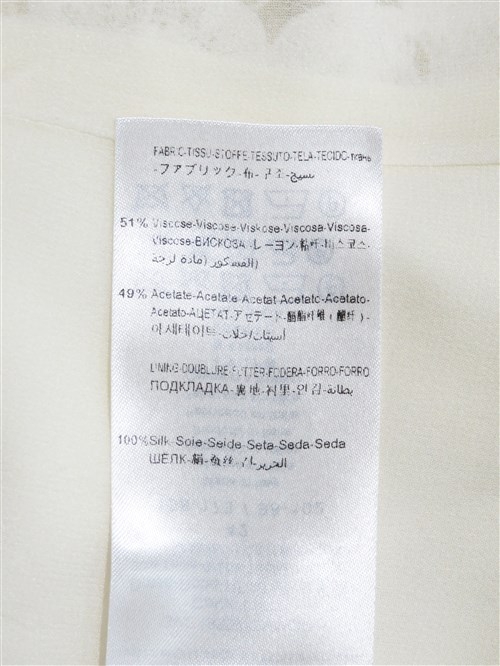 FABRIC-TISSU-STOFFE-TESSUTO-TELA-TECIDO-ткань
-ファブリック-布-구조-نسيج
51% Viscose-Viscose-Viskose-Viscosa-Viscosa-
Viscose-ВИСКОЗА-レーヨン-粘纤-비스코스-
(الفسكوز (مادة لزجة
49% Acetate-Acetate-Acetat-Acetato-Acetato-
Acetato-АЦЕТАТ-アセテート-醋酯纤维(醋纤)-
아세테이트-أسيتات/خلات
LINING-DOUBLURE-FUTTER-FODERA-FORRO-FORRO
ПОДКЛАДКА-裏地-衬里-안감-بطانة
100%Silk-Soie-Seide-Seta-Seda-Seda
ШЁЛК-絹-蚕丝-الحرير